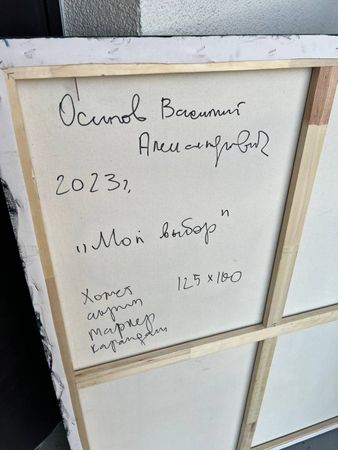 Осипов Василий
Александрович
2023г.
„Мой выбор"
Холст 125х100
акрил
маркер
карандаш